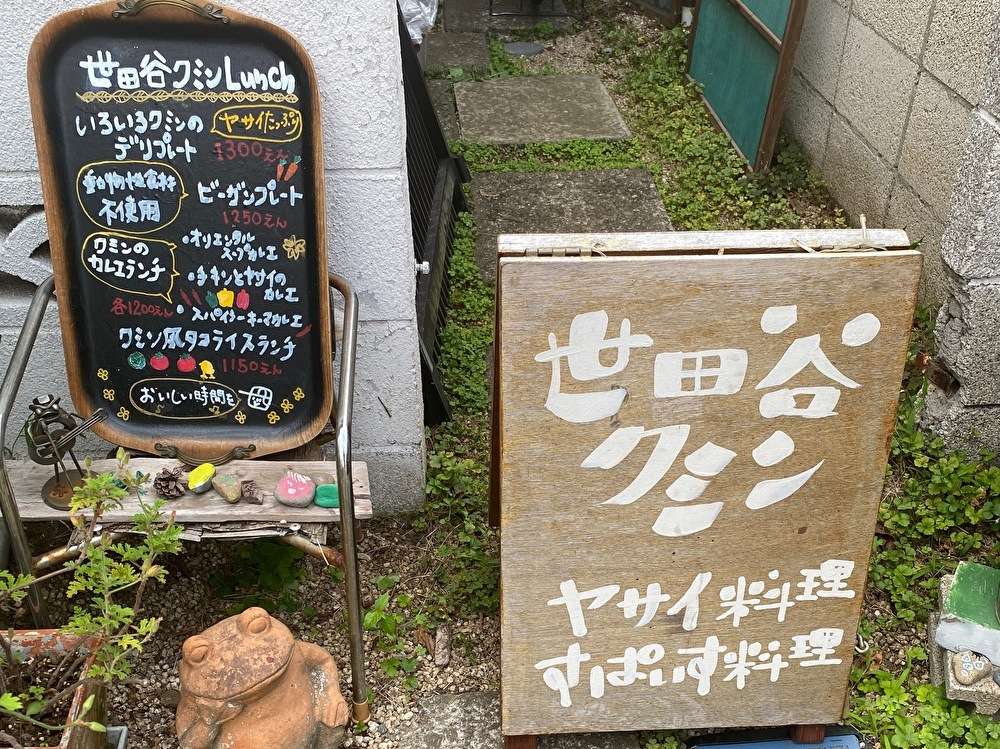 世田谷クミンLunch
いろいろクミンの
デリプレート
ヤサイたっぷり
1300えん
動物性食材
不使用
ビーガンプレート
1250えん
クミンの
カレエランチ
各1200えん
・オリエンタル
スープカレエ
・チキンとヤサイの
カレエ
・スパイシーキーマカレエ
クミン風タコライスランチ
1150えん
おいしい時間を
世田谷
クミン
ヤサイ料理
すぱいす料理